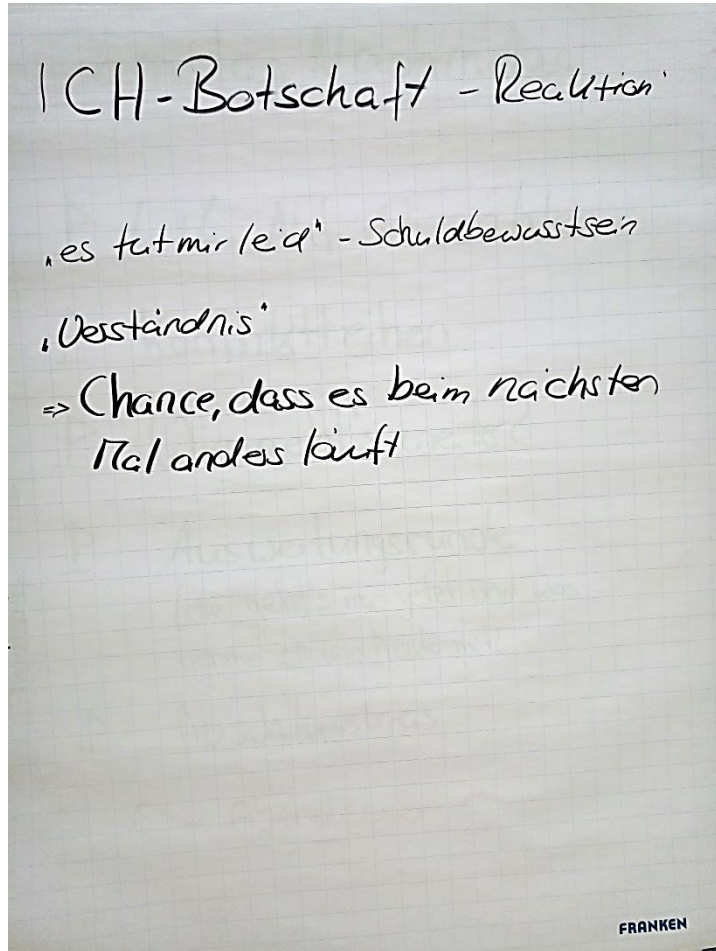 ICH-Botschaft - Reaktion
„es tut mir leid" - Schuldbewusstsein
„Verständnis"
=> Chance, dass es beim nächsten
Mal anders läuft
Auswertungsrunde
FRANKEN